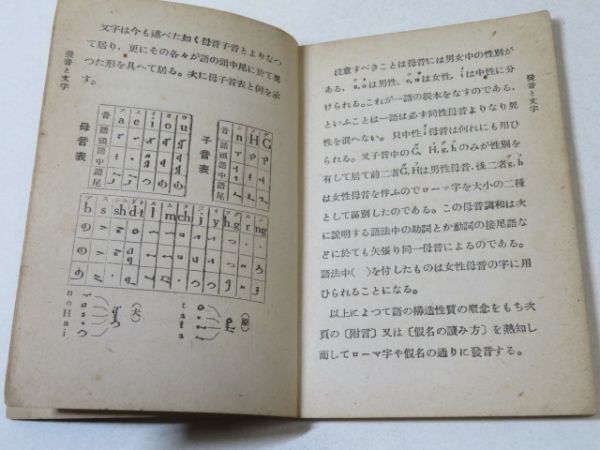 發音と文字
文字は今も述べた如く母音子音とよりなつ
て居り、更にその各々が語の頭中尾に於て異
つた形を具へて居る。次に母子音表と例を示
す。
母音表
音 a e i o u
語頭
語中
語尾
子音表
音 n H G
語頭
語中
語尾
b s sh d·t l m ch j y h.g r ng
(犬)
noHai
(原)
tala
發音と文字
注意すべきことは母音には男女中の性別が
ある、a,o は男性、は女性、i は中性に分
けられる。これが一語の根本をなすのである、
といふことは一語は必ず同性母音よりなり異
性を混へない。只中性 i 母音は何れにも用ひ
られる。又子音中の G, H, g, h のみが性別を
有して居て前二者 G, H は男性母音、後二者 g, h
は女性母音を伴ふのでローマ字を大小の二種
として區別したのである。この母音調和は次
に說明する語法中の助詞とか動詞の接尾語な
どに於ても矢張り同一母音によるのである。
語法中( )を付したものは女性母音の字に用
ひられることになる。
以上によつて語の構造性質の概念をもち次
頁の〔附言〕又は〔假名の讀み方〕を熟知し
而してローマ字や假名の通りに發音する。